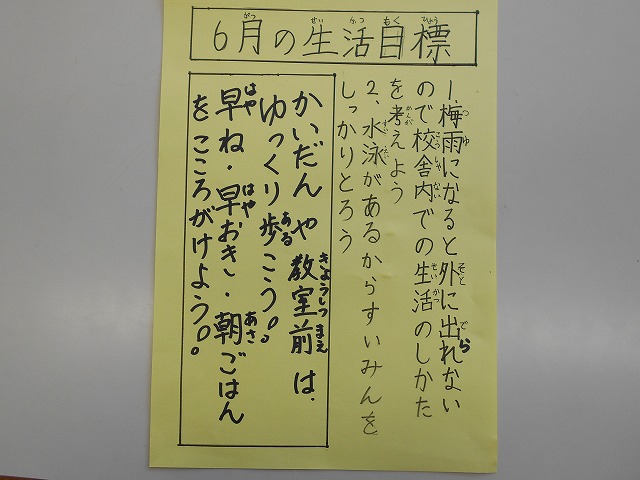 6月の生活目標
1.梅雨になると外に出れない
ので校舎内での生活のしかた
を考えよう
2.水泳があるからすいみんを
しっかりとろう
かいだんや教室前は、
ゆっくり歩こう。
早ね・早おき・朝ごはん
をこころがけよう。